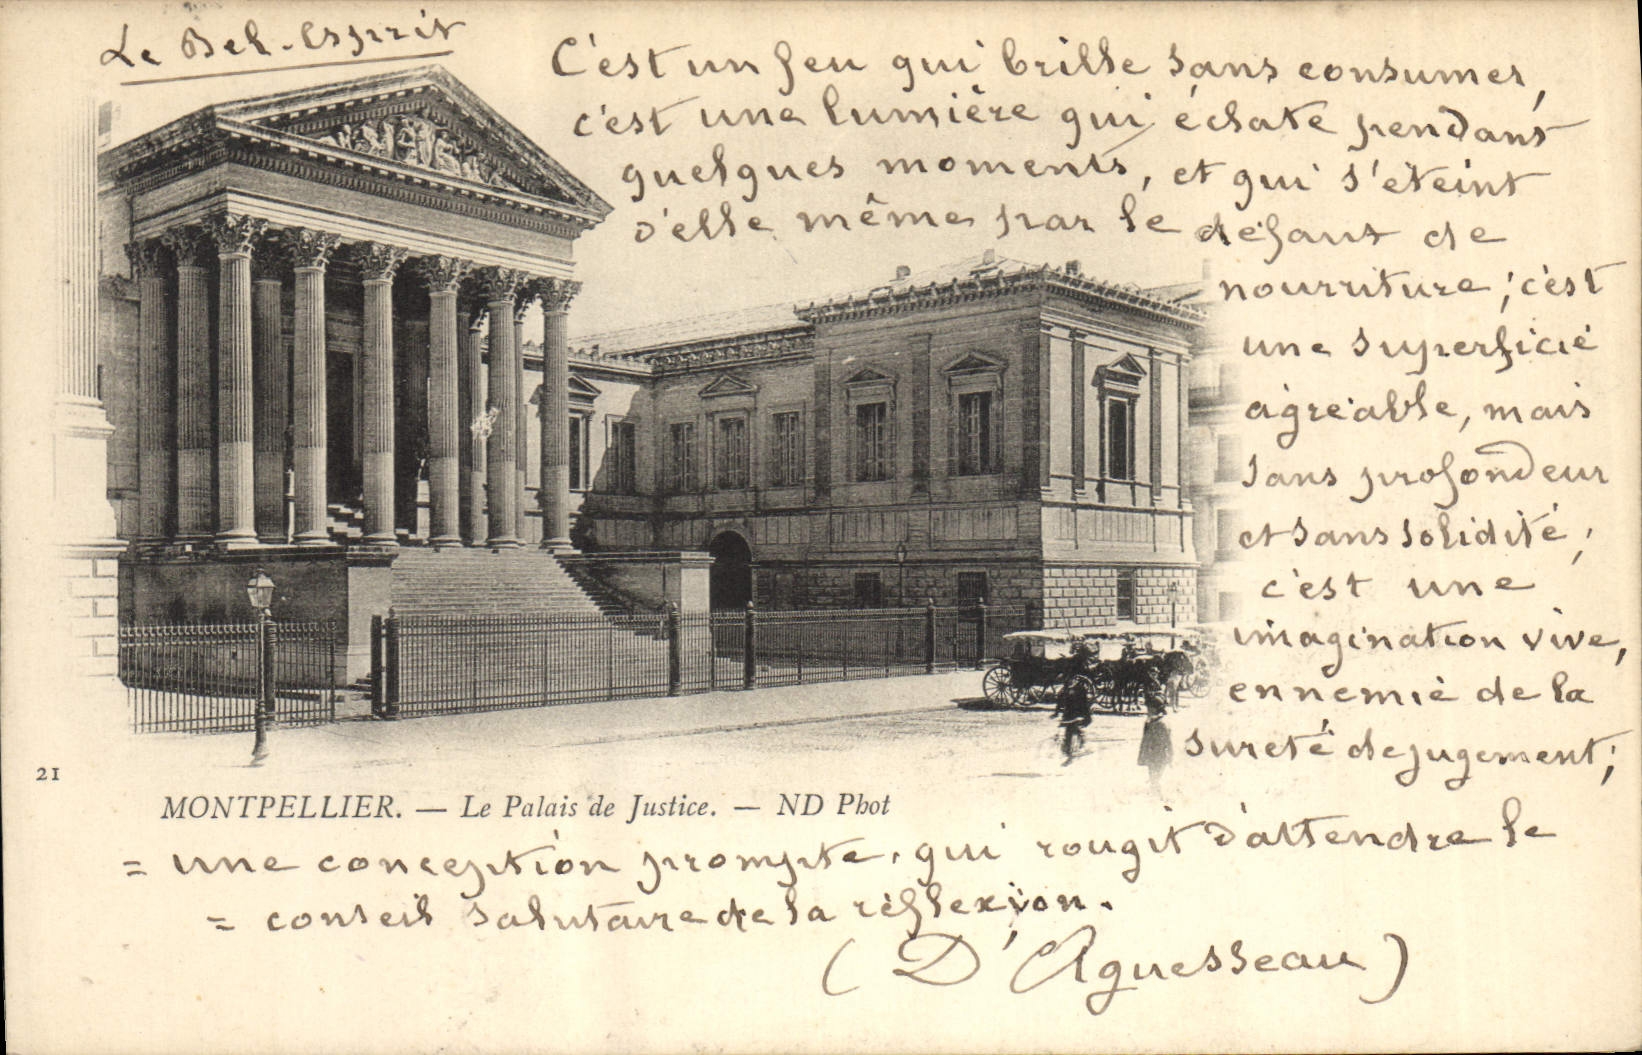 Le Bel-Esprit
C'est un feu qui brille sans consumer,
c'est une lumière qui éclate pendant
quelques moments, et qui s'éteint
d'elle même par le défaut de
nourriture ; c'est
une superficie
agréable, mais
sans profondeur
et sans solidité ;
c'est une
imagination vive,
ennemie de la
sureté de jugement ;
21
MONTPELLIER. — Le Palais de Justice. — ND Phot
= une conception prompte, qui rougit d'attendre le
= conseil salutaire de la réflexion.
( D'Aguesseau )